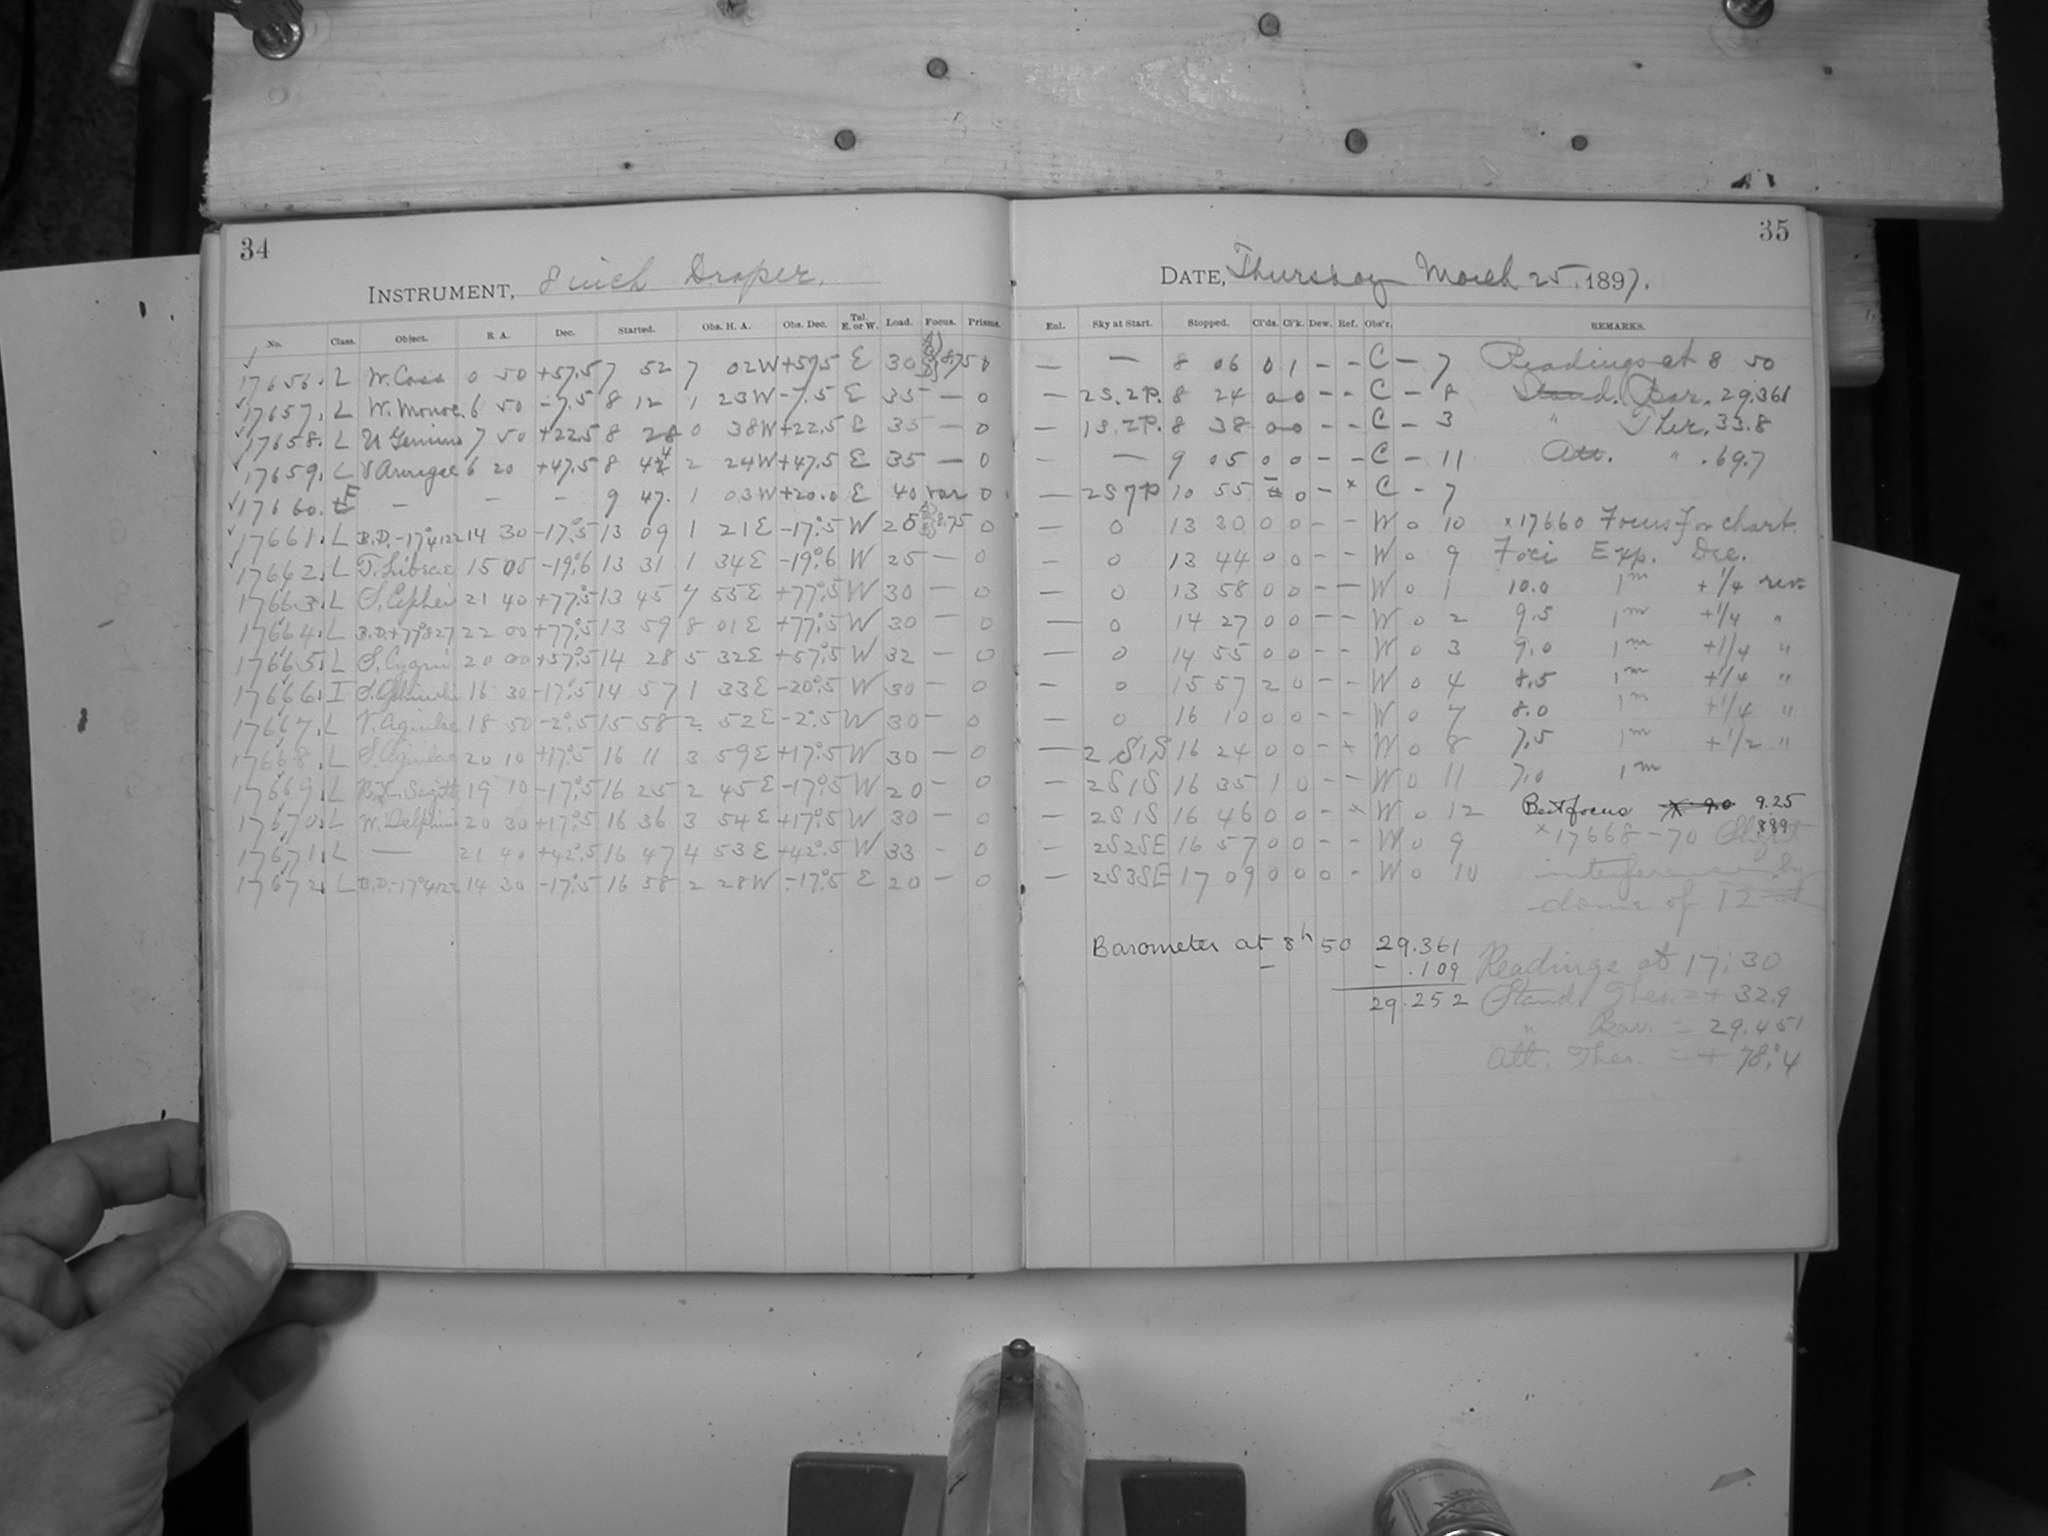 34
INSTRUMENT, 8 inch Draper.
No. Class. Object. R. A. Dec. Started. Obs. H. A. Obs. Dec. Tel. E. or W. Load. Focus. Prisms.
17656. L W. Cass 0 50 +57.5 7 52 7 02W +57.5 E 30 8.75 0
17657. L W. Monoc. 6 50 -7.5 8 12 1 23W -7.5 E 35 — 0
17658. L U Geminor 7 50 +22.5 8 28 0 38W +22.5 E 35 — 0
17659. L Aurigae 6 20 +47.5 8 44 2 24W +47.5 E 35 — 0
17660. E — — — 9 47. 1 03W +20.0 E 40 var 0
17661. L B.D. -17°4122 14 30 -17°.5 13 09 1 21E -17°.5 W 25 8.75 0
17662. L T. Librae 15 05 -19°.6 13 31 1 34E -19°.6 W 25 — 0
17663. L S. Cephei 21 40 +77°.5 13 45 7 55E +77°.5 W 30 — 0
17664. L B.D. +77°827 22 00 +77°.5 13 59 8 01E +77°.5 W 30 — 0
17665. L S. Cygni 20 00 +57°.5 14 28 5 32E +57°.5 W 32 — 0
17666. I 16 30 -17°.5 14 57 1 33E -20°.5 W 30 — 0
17667. L V. Aquilae 18 50 -2°.5 15 58 2 52E -2°.5 W 30 — 0
17668. L S. Aquilae 20 10 +17°.5 16 11 3 59E +17°.5 W 30 — 0
17669. L Sagitt 19 10 -17°.5 16 25 2 45E -17°.5 W 20 — 0
17670. L W. Delphini 20 30 +17°.5 16 36 3 54E +17°.5 W 30 — 0
17671. L — 21 40 +42°.5 16 47 4 53E +42°.5 W 33 - 0
17672. L B.D. -17°4122 14 30 -17°.5 16 58 2 28W -17°.5 E 20 — 0
35
DATE, Thursday March 25, 1897.
Enl. Sky at Start. Stopped. Cl'ds. Cl'k. Dew. Ref. Obs'r. REMARKS.
— — 8 06 0 1 - - C - 7 Readings at 8 50
— 2S.2P. 8 24 0 0 - - C - 8 Stand. Bar. 29.361
— 1S.2P. 8 38 0 0 - - C - 3 " Ther. 33.8
— — 9 05 0 0 - - C - 11 Att. " .69.7
— 2S7P 10 55 0 - x C - 7
— 0 13 30 0 0 - - W 0 10 x17660 Focus for chart.
— 0 13 44 0 0 - - W 0 9 Foci Exp. Dec.
— 0 13 58 0 0 - - W 0 1 10.0 1m +1/4 rev.
— 0 14 27 0 0 - - W 0 2 9.5 1m +1/4 "
— 0 14 55 0 0 - - W 0 3 9.0 1m +1/4 "
— 0 15 57 2 0 - - W 0 4 8.5 1m +1/4 "
— 0 16 10 0 0 - - W 0 7 8.0 1m +1/4 "
— 2S1S 16 24 0 0 - x W 0 8 7.5 1m +1/2 "
— 2S1S 16 35 1 0 - - W 0 11 7.0 1m
— 2S1S 16 46 0 0 - x W 0 12 Best focus 9.0 9.25
8.89
— 2S2SE 16 57 0 0 - - W 0 9 x17668-70 Slight
— 2S3SE 17 09 0 0 0 - W 0 10 interference by
dome of 12 in
Barometer at 8h 50 29.361
- .109
29.252
Readings at 17:30
Stand. Ther. = + 32.9
" Bar. = 29.451
Att. Ther. = + 78°.4